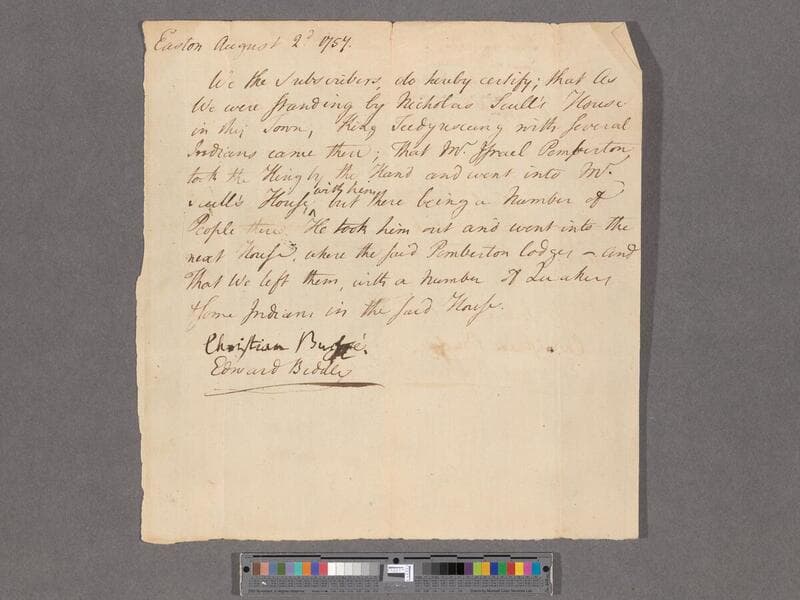 Easton August 2d 1757.
We the Subscribers, do hereby certify; that As
We were standing by Nicholas Scull's House
in this Town, King Teedyuscung with several
Indians came there; that Mr. Israel Pemberton
took the King by the Hand and went into Mr.
Scull's House, with him, but there being a Number of
People there He took him out and went into the
next House, where the said Pemberton lodges – and
that We left them, with a Number of Quakers
& some Indians in the said House.
Christian
Edward Biddle